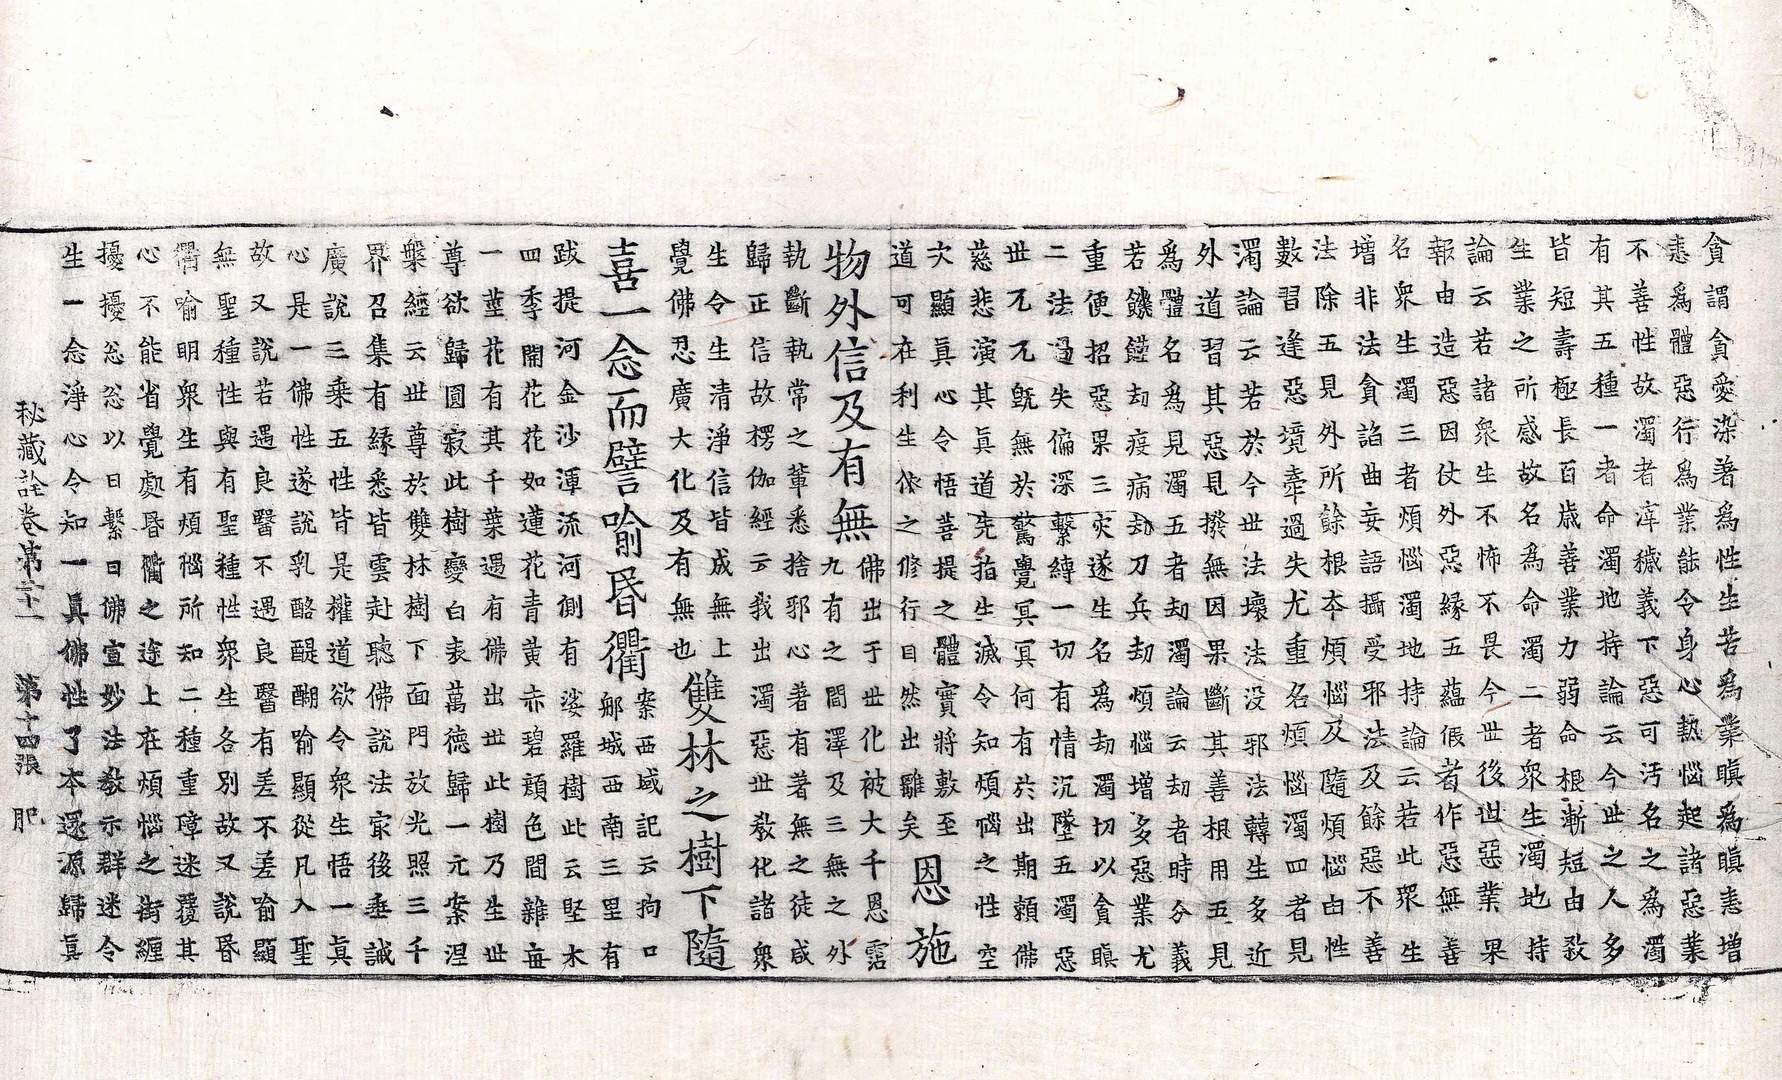 貪謂貪愛染著為性生苦為業瞋為瞋恚增
恚為體惡行為業能令身心熱惱起諸惡業
不善性故濁者滓穢義下惡可汚名之為濁
有其五種一者命濁地持論云今世之人多
皆短壽極長百歳善業力弱命根漸短由殺
生業之所感故名為命濁二者衆生濁地持
論云若諸衆生不怖不畏今世後世惡業果
報由造惡因仗外惡縁五蘊假者作惡無善
名衆生濁三者煩惱濁地持論云若此衆生
增非法貪諂曲妄語攝受邪法及餘惡不善
法除五見外所餘根本煩惱及隨煩惱由性
數習逢惡境牽過失尤重名煩惱濁四者見
濁論云若於今世法壞法没邪法轉生多近
外道習其惡見撥無因果斷其善根用五見
為體名為見濁五者劫濁論云劫者時分義
若饑饉劫疫病劫刀兵劫煩惱增多惡業尤
重便招惡果三灾遂生名為劫濁切以貪瞋
二法過失偏深繫縛一切有情沉墜五濁惡
世兀兀旣無於驚覺冥冥何有於出期頼佛
慈悲演其眞道先指生滅令知煩惱之性空
次顯眞心令悟菩提之體實將敷至
道可在利生依之修行自然出離矣
恩施
物外信及有無
佛出于世化被大千恩霑
九有之間澤及三無之外
執斷執常之輩悉捨邪心著有著無之徒咸
歸正信故楞伽經云我出濁惡世敎化諸衆
生令生清淨信皆成無上
覺佛忍廣大化及有無也
雙林之樹下隨
喜一念而譬喻昏衢
案西域記云拘口
郍城西南三里有
跋提河金沙渾流河側有娑羅樹此云堅木
四季開花花如蓮花青黄赤碧顔色間雜每
一莖花有其千葉遇有佛出世此樹乃生世
尊欲歸圓寂此樹變白表萬德歸一元案涅
槃經云世尊於雙林樹下面門放光照三千
界召集有縁悉皆雲赴聽佛說法宷後垂誡
廣說三乘五性皆是權道欲令衆生悟一眞
心是一佛性遂說乳酪醍醐喻顯從凡入聖
故又說若遇良醫不遇良醫有差不差喻顯
無聖種性與有聖種性衆生各別故又說昏
衢喻明衆生有煩惱所知二種重障迷覆其
心不能省覺處昏衢之途上在煩惱之街纏
擾擾忩忩以日繫日佛宣妙法敎示群迷令
生一念淨心令知一眞佛性了本還源歸眞
秘藏詮卷第二十一 第十四張 肥